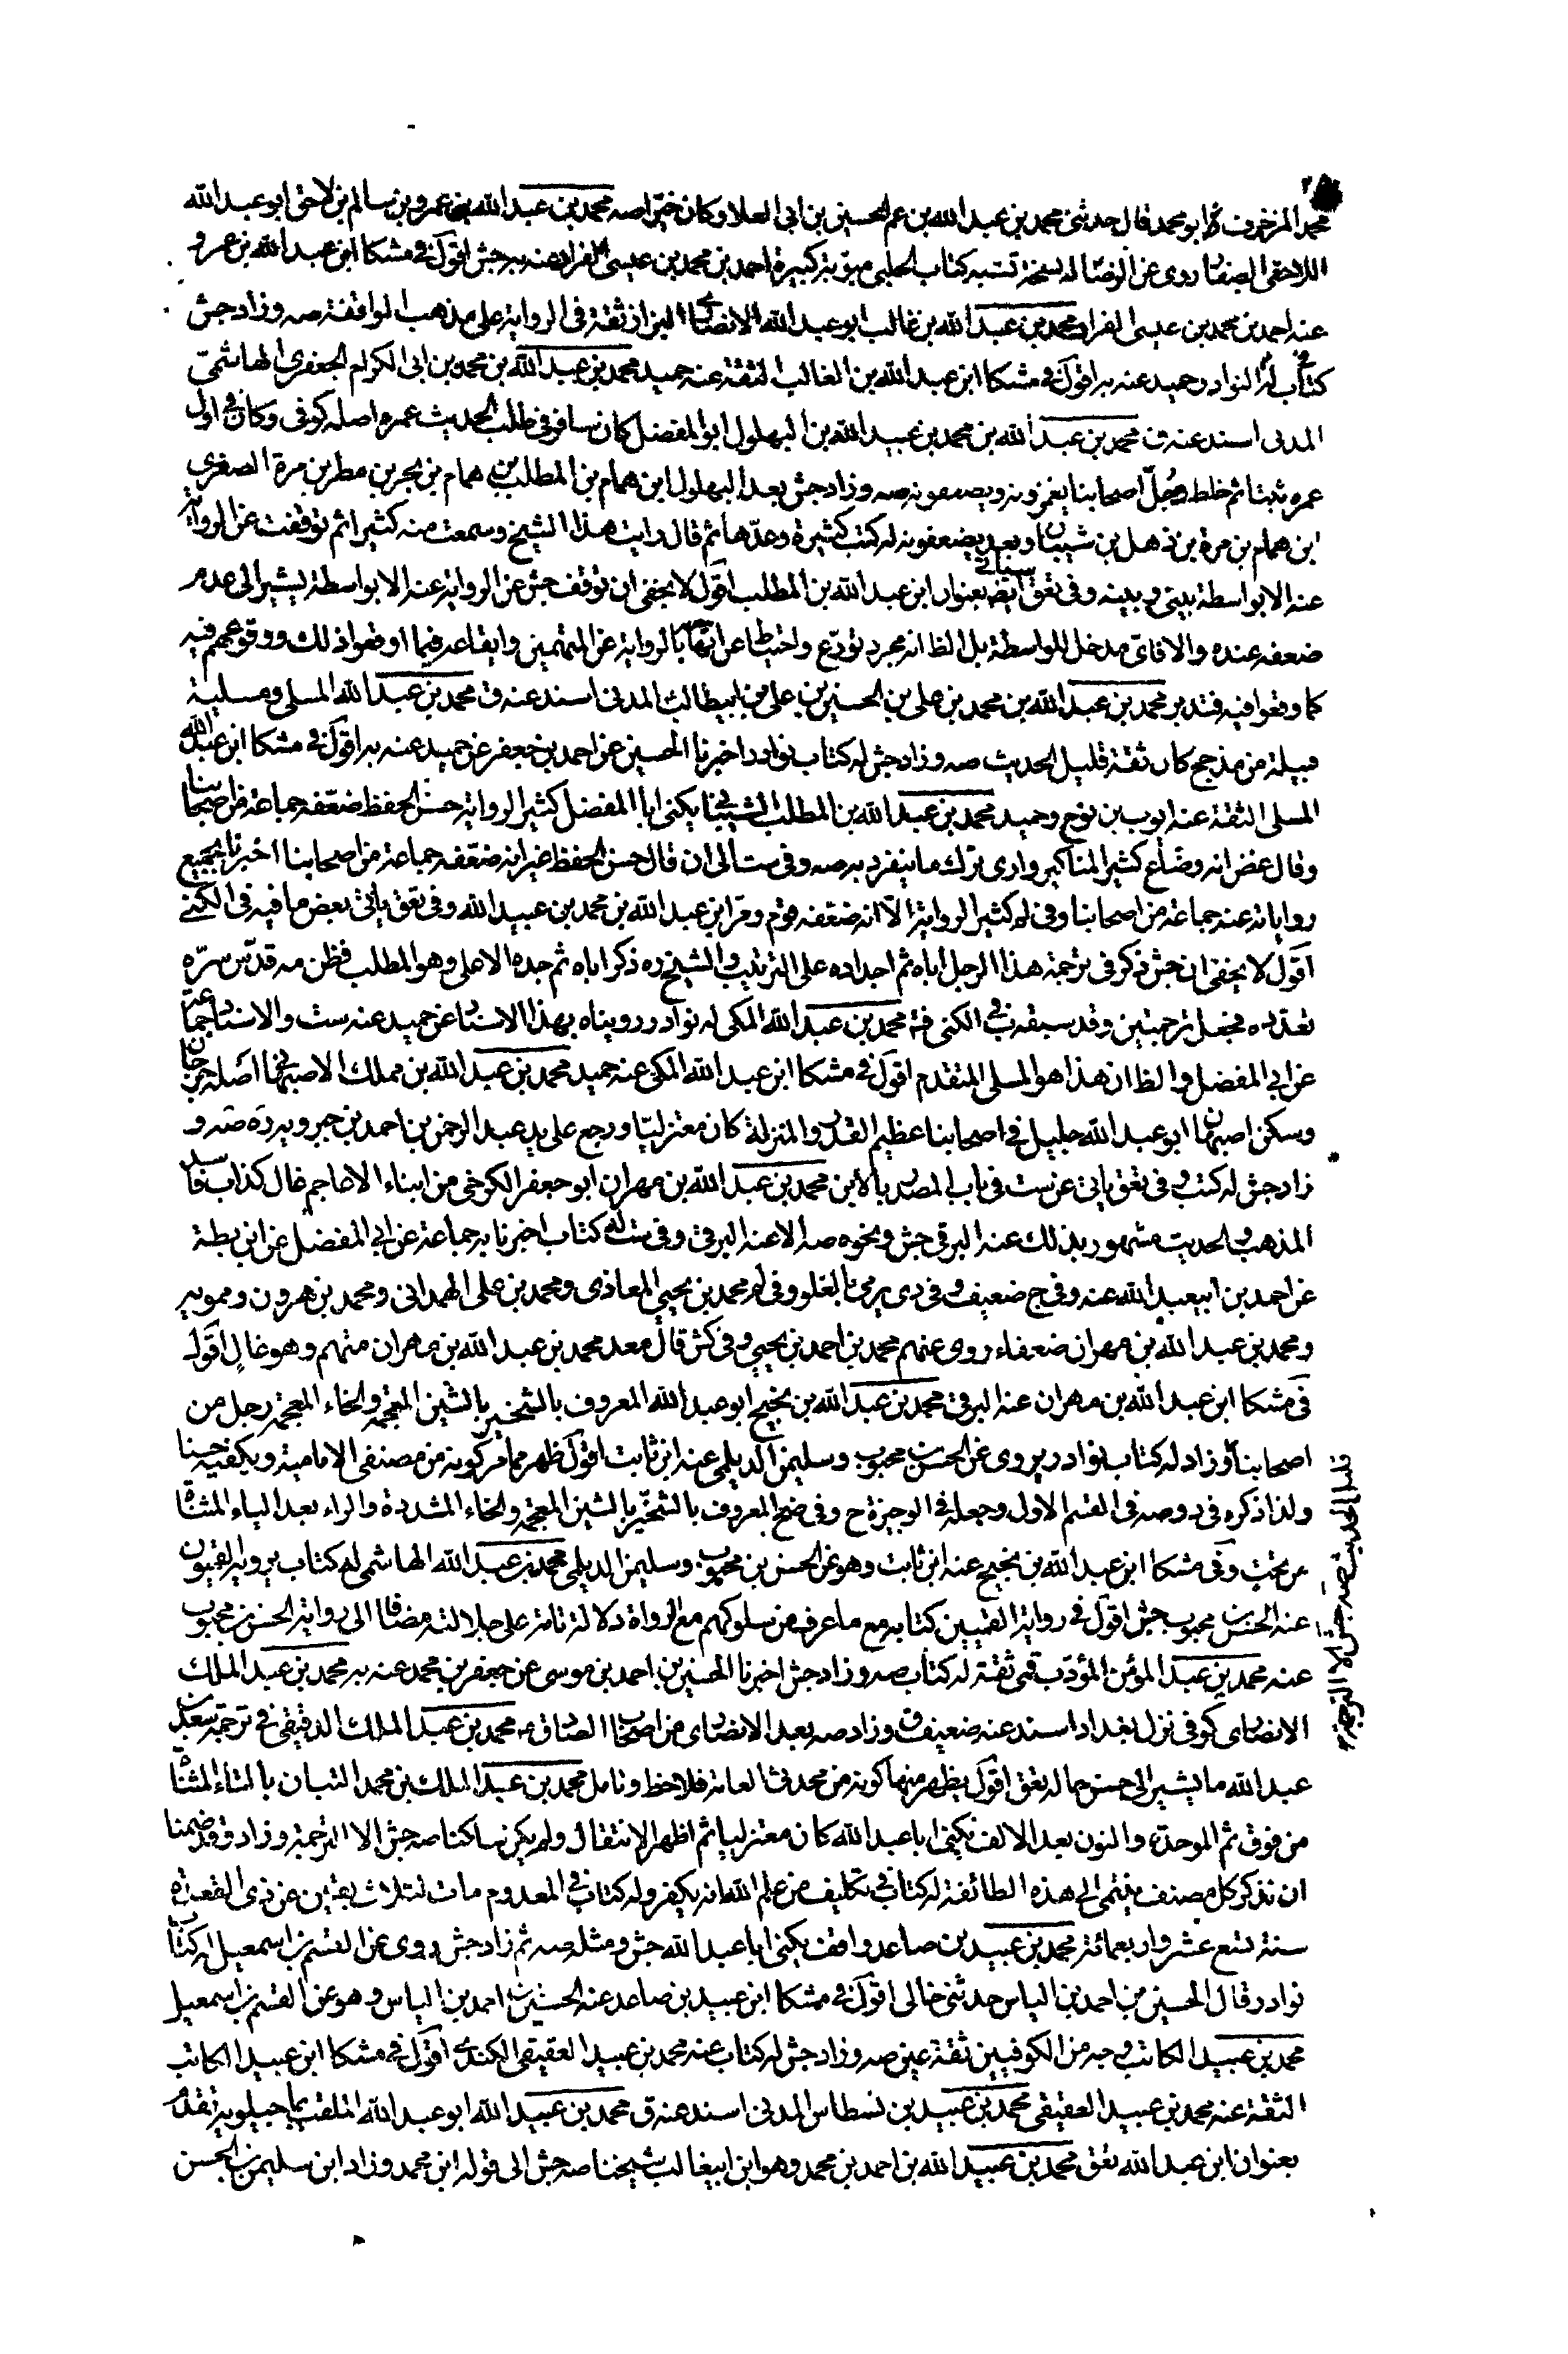 محمد المزخرف ثم ابو محمد قال حدثنى محمد بن عبد الله بن عم الحسين بن ابى العلا وكان خيرا صه محمد بن عبد الله بن عمرو بن سالم بن لاحق ابو عبد الله
اللاحقى الصفار روى عن الرضا له نسخة تشبه كتاب الحلبى مبوبة كبيرة احمد بن محمد بن عيسى الغراد عنه به جش اقول فى مشكا ابن عبد الله بن عمرو
عنه احمد بن محمد بن عيسى الغراد محمد بن عبد الله بن غالب ابو عبد الله الانصارى البزاز ثقة فى الرواية على مذهب الواقفة صه وزاد جش
كتاب النوادر حميد عنه به اقول فى مشكا ابن عبد الله بن الغالب الثقة عنه حميد محمد بن عبد الله بن محمد بن ابى الكرام الجعفرى الهاشمى
المدنى اسند عنه ق محمد بن عبد الله بن محمد بن عبيد الله بن البهلول ابو المفضل كان سافر فى طلب الحديث عمره اصله كوفى وكان فى اول
عمره ثبتا ثم خلط وجل اصحابنا يغمزونه ويضعفونه صه وزاد جش بعد البهلول ابن همام بن المطلب بن همام بن بحر بن مطر بن مرة الصغرى
ابن همام بن مرة بن ذهل بن شيبان وبعد يضعفونه له كتب كثيرة وعدها ثم قال رايت هذا الشيخ وسمعت منه كثيرا ثم توقفت عن الرواية
عنه الا بواسطة بينى وبينه وفى تعق سيأتى ايضا بعنوان ابن عبد الله بن المطلب اقول لا يخفى ان توقف جش عن الرواية عنه الا بواسطة يشير الى عدم
ضعفه عنده والا فاى مدخل للواسطة بل الظ انه مجرد تورع واحتياط عن اتهامه بالرواية عن المتهمين وايقاعه فيما اوقعوا ذلك ووقوعهم فيه
كما وقعوا فيه فتدبر محمد بن عبد الله بن محمد بن على بن الحسين بن على بن ابيطالب المدنى اسند عنه ق محمد بن عبد الله المسلى ومسلية
قبيلة من مذحج كان ثقة قليل الحديث صه وزاد جش له كتاب نوادر اخبرنا الحسين عن احمد بن جعفر عن حميد عنه به اقول فى مشكا ابن عبد الله
المسلى الثقة عنه ايوب بن نوح وحميد محمد بن عبد الله بن المطلب الشيبانى يكنى ابا المفضل كثير الرواية حسن الحفظ ضعفه جماعة من اصحابنا
وقال غض انه وضاع كثير المناكير وارى ترك ما ينفرد به صه وفى ست الى ان قال حسن الحفظ غير انه ضعفه جماعة من اصحابنا اخبرنا بجميع
رواياته عنه جماعة من اصحابنا وفى لم كثير الرواية الا انه ضعفه قوم ومر ابن عبد الله بن محمد بن عبيد الله وفى تعق ياتى بعض ما فيه فى الكنى
اقول لا يخفى ان جش ذكر فى ترجمة هذا الرجل اباه ثم اجداده على الترتيب والشيخ ره ذكر اباه ثم جده الاعلى وهو المطلب فظن مه قدس سره
تعدده فجعل ترجمتين وقد سبقه فى الكنى محمد بن عبد الله المكى له نوادر رويناه بهذا الاسناد عن حميد عنه ست والاسناد جماعة
عن ابى المفضل والظ ان هذا هو المسلى المتقدم اقول فى مشكا ابن عبد الله المكى عنه حميد محمد بن عبد الله بن مملك الاصبهانى اصله جرجان
وسكن اصبهان ابو عبد الله جليل فى اصحابنا عظيم القدر والمنزلة كان معتزليا ورجع على يد عبد الرحمن بن احمد بن جبرويه ره صه و
زاد جش له كتب وفى تعق ياتى عن ست فى باب المصدر بالابن محمد بن عبد الله بن مهران ابو جعفر الكرخى من ابناء الاعاجم غال كذاب فاسد
المذهب والحديث مشهور بذلك عنه البرقى جش ونحوه صه الا عنه البرقى وفى ست له كتاب اخبرنا به جماعة عن ابى المفضل عن ابن بطة
عن احمد بن ابيعبد الله عنه وفى ج ضعيف وفى دى يرمى بالغلو وفى لم محمد بن يحيى المعاذى ومحمد بن على الهمدانى ومحمد بن هرون ومموية
ومحمد بن عبد الله بن مهران ضعفاء روى عنهم محمد بن احمد بن يحيى وفى كش قال محمد بن عبد الله بن مهران متهم وهو غال اقول
فى مشكا ابن عبد الله بن مهران عنه البرقى محمد بن عبد الله بن نجيح ابو عبد الله المعروف بالشخير بالشين المعجمة والخاء المعجمة رجل من
اصحابنا وزاد له كتاب نوادر يروى عن الحسن بن محبوب وسليمن الديلمى عنه ابن ثابت اقول ظهر مما مر كونه من مصنفى الامامية ويكفيه حسنا
ولذا ذكره فى د وصه فى القسم الاول وجعله فى الوجيزة ح وفى ضح المعروف بالشخير بالشين المعجمة والخاء المشددة والراء بعد الياء المثناة
من تحت وفى مشكا ابن عبد الله بن نجيح عنه ابن ثابت وهو عن الحسن بن محبوب وسليمن الديلمى محمد بن عبد الله الهاشمى له كتاب يرويه القميون
عنه الحسن بن محبوب جش اقول فى رواية القميين كتابه مع ما عرف من سلوكهم مع الرواة دلالة تامة على جلالته مضافا الى رواية الحسن بن محبوب
عنه محمد بن عبد المؤمن المؤدب قمى ثقة له كتاب صه وزاد جش اخبرنا الحسين بن احمد بن موسى عن جعفر بن محمد عنه به محمد بن عبد الملك
الانصارى كوفى نزل بغداد اسند عنه ضعيف ق وزاد صه بعد الانصارى من اصحاب الصادق ع محمد بن عبد الملك الدقيقى فى ترجمة سعد بن
عبد الله ما يشير الى حسن حاله تعق اقول يظهر منها كونه من محدثى العامة فلاحظ وتامل محمد بن عبد الملك بن محمد التبان بالتاء المثناة
من فوق ثم الموحدة والنون بعد الالف يكنى ابا عبد الله كان معتزليا ثم اظهر الانتقال ولم يكن ساكنا صه جش الا الترجمة وزاد وقد ضمنا
ان نذكر كل مصنف ينتمى الى هذه الطائفة له كتاب فى تكليف من علم الله انه يكفر وله كتاب فى المعدوم مات لثلاث بقين من ذى القعدة
سنة تسع عشر واربعمائة محمد بن عبيد بن صاعد واقف يكنى ابا عبد الله جش ومثله صه ثم زاد جش روى عن القسم بن اسمعيل له كتاب
نوادر قال الحسين بن احمد بن الياس حدثنى خالى اقول فى مشكا ابن عبيد بن صاعد عنه الحسين بن احمد بن الياس وهو عن القسم بن اسمعيل
محمد بن عبيد الكاتب وجه من الكوفيين ثقة عين صه وزاد جش له كتاب عنه محمد بن عبيد العقيقى الكندى اقول فى مشكا ابن عبيد الكاتب
الثقة عنه محمد بن عبيد العقيقى محمد بن عبيد بن نسطاس المدنى اسند عنه ق محمد بن عبيد الله ابو عبد الله الملقب بماجيلويه تقدم
بعنوان ابن عبد الله تعق محمد بن عبيد الله بن احمد بن محمد وهو ابن ابيغالب شيخنا صه جش الى قوله ابن محمد وزاد ابن سليمن بن الحسن
قليل الحديث صه جش الا